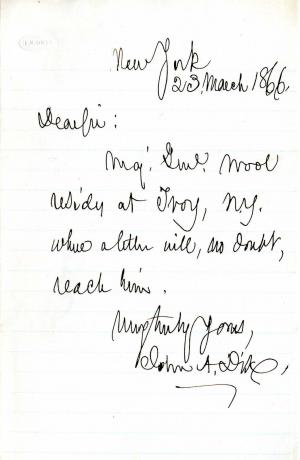 New York
23, March 1866.
Dear Sir:
Maj. Genl. Wool
resides at Troy, N.Y.
where a letter will, no doubt,
reach him.
Very truly yours,
John A. Dix,